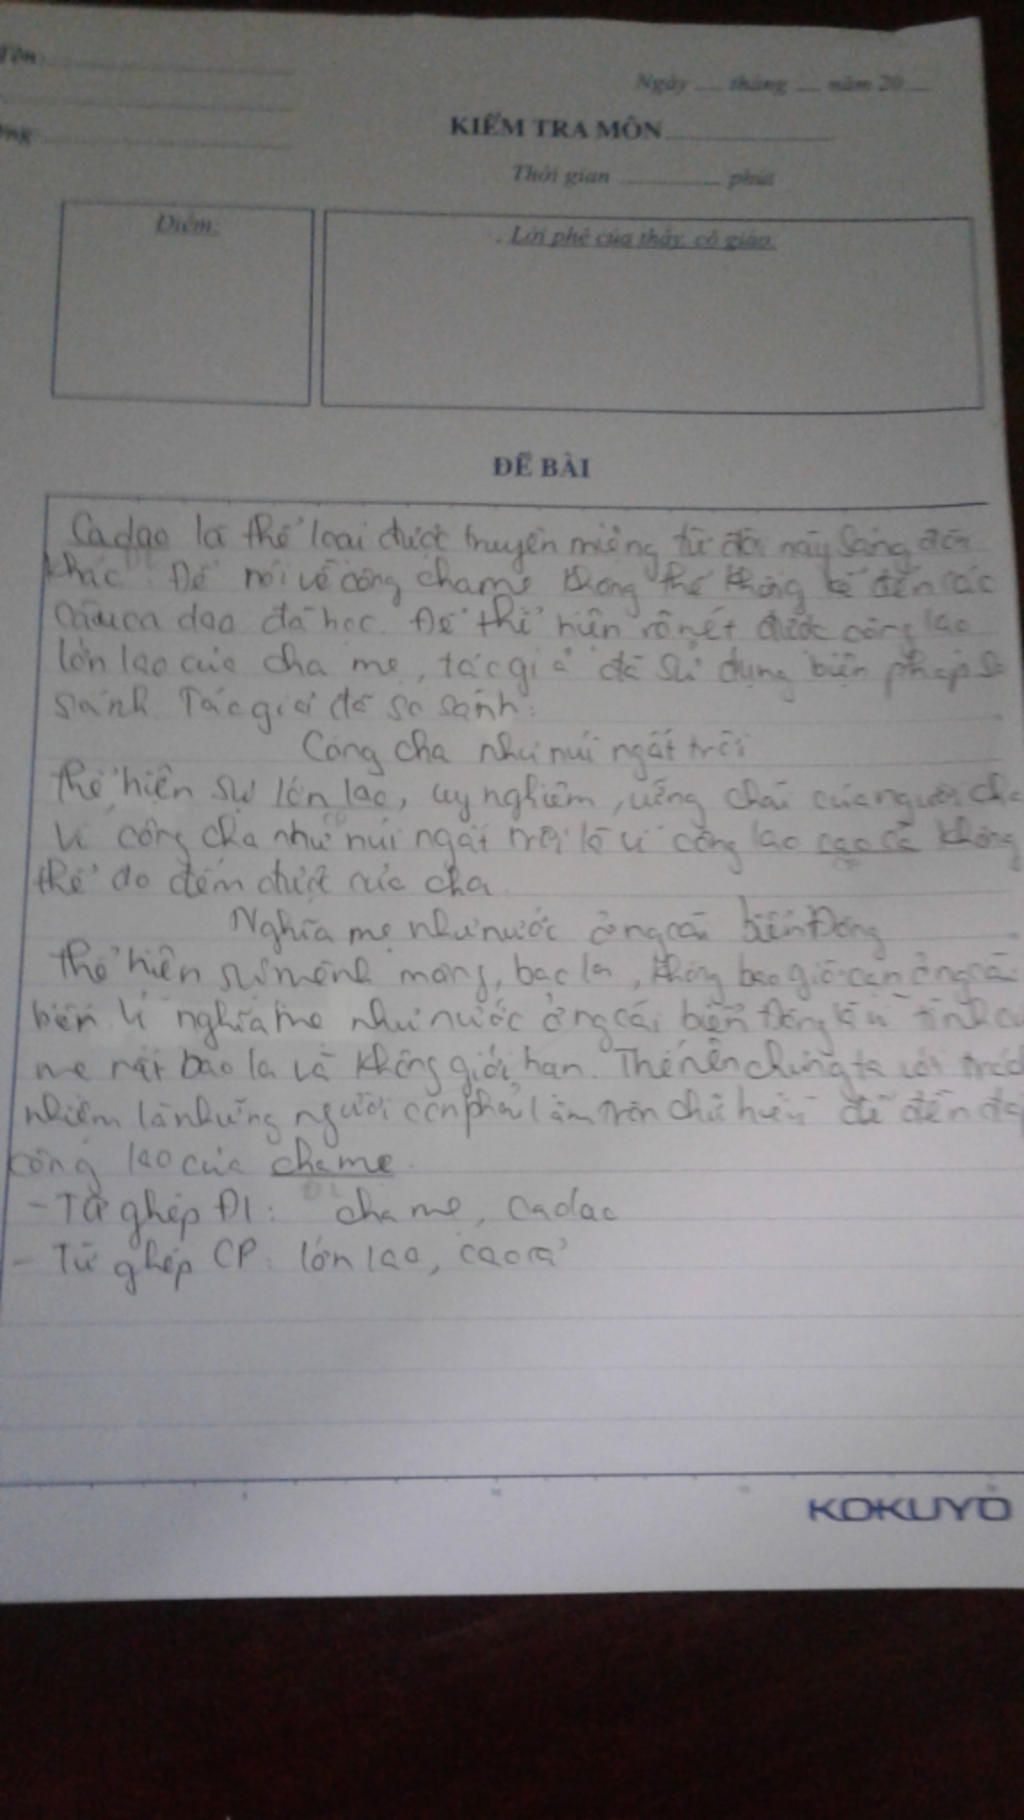 Tên:
Ngày ... tháng ... năm 20 ...
KIỂM TRA MÔN
Thời gian ... phút
Điểm:
Lời phê của thầy, cô giáo
ĐỀ BÀI
Ca dao là thể loại được truyền miệng từ đời này sang đời
khác. Để nói về công cha mẹ không thể không kể đến các
câu ca dao đã học. Để thể hiện rõ nét được công lao
lớn lao của cha mẹ, tác giả đã sử dụng biện pháp so
sánh. Tác giả đã so sánh:
Công cha như núi ngất trời
thể hiện sự lớn lao, uy nghiêm, vững chãi của người cha
Ví công cha như núi ngất trời là vì công lao cao cả không
thể đo đếm được của cha.
Nghĩa mẹ như nước ở ngoài biển Đông
thể hiện sự mênh mông, bao la, không bao giờ cạn ở ngoài
biển. Ví nghĩa mẹ như nước ở ngoài biển Đông là vì tình
mẹ rất bao la và không giới hạn. Thế nên chúng ta với trách
nhiệm là những người con phải làm tròn chữ hiếu để đền đáp
công lao của cha mẹ.
- Từ ghép ĐL: cha mẹ, ca dao
- Từ ghép CP: lớn lao, cao cả
KOKUYO